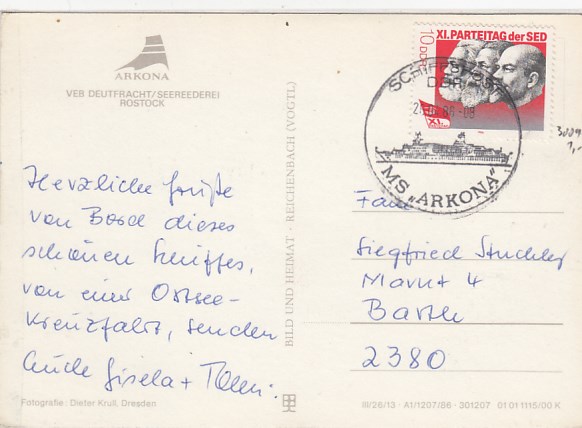 ARKONA
VEB DEUTFRACHT/SEEREEDEREI
ROSTOCK
Herzliche Grüße
von Bord dieses
schönen Schiffes,
von einer Ostsee-
kreuzfahrt, senden
Gisela +
Fotografie: Dieter Krull, Dresden
BILD UND HEIMAT · REICHENBACH (VOGTL)
XI. PARTEITAG der SED
10 DDR
XI.
SCHIFFSPOST
DDR
86-08
MS „ARKONA"
3009
1,-
Fam
Siegfried
Markt 4
Barth
2380
III/26/13 · A1/1207/86 · 301207 01 01 1115/00 K